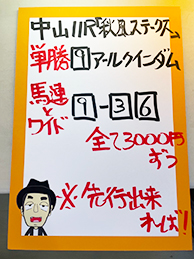 中山11R『秋風ステークス』
単勝9アールクインダム
馬連とワイド 9-36
全て3000円ずつ
※先行出来れば!!